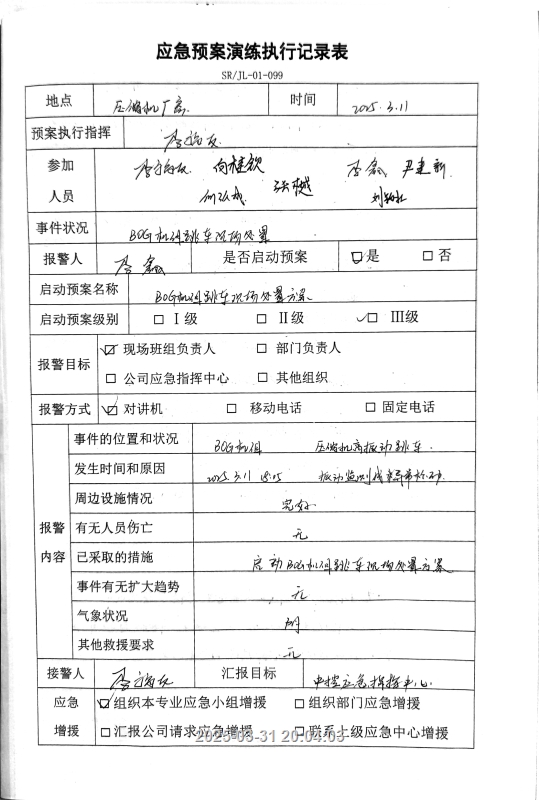 应急预案演练执行记录表
SR/JL-01-099
地点 压缩机厂房 时间 2025.3.11
预案执行指挥
参加 向继钦 李鑫 尹建新
人员 张樾
事件状况 BOG机组跳车现场处置
报警人 李鑫 是否启动预案 ☑是 □否
启动预案名称 BOG机组跳车现场处置方案
启动预案级别 □Ⅰ级 □Ⅱ级 ☑Ⅲ级
报警目标 ☑现场班组负责人 □部门负责人
□公司应急指挥中心 □其他组织
报警方式 ☑对讲机 □移动电话 □固定电话
报警内容
事件的位置和状况 BOG机组 压缩机高振动跳车
发生时间和原因 2025.3.11 振动监测线
周边设施情况 完好
有无人员伤亡 无
已采取的措施 启动BOG机组跳车现场处置方案
事件有无扩大趋势 无
气象状况
其他救援要求 无
接警人 汇报目标 中控应急指挥中心
应急 ☑组织本专业应急小组增援 □组织部门应急增援
增援 □汇报公司请求应急增援 □联系上级应急中心增援
2025-03-31 20:04:03